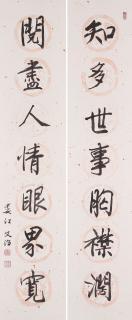 知多世事胸襟濶
閱盡人情眼界寬
婁江